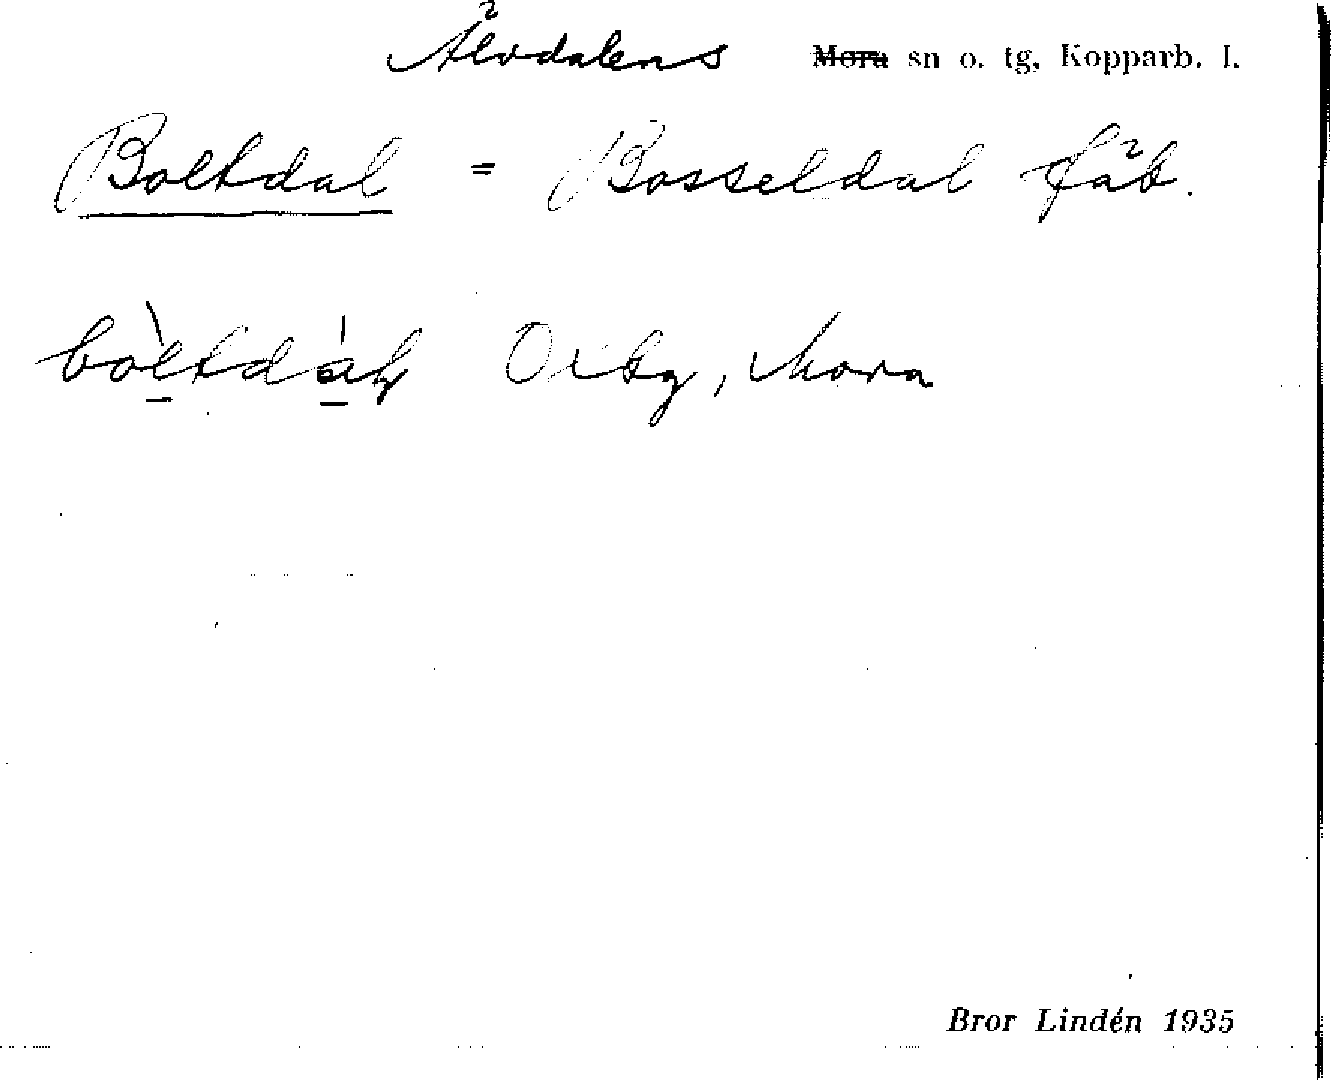 Älvdalens Mora sn o. tg, Kopparb. l.
Boltdal = Bosseldal fäb.
Mora
Bror Lindén 1935